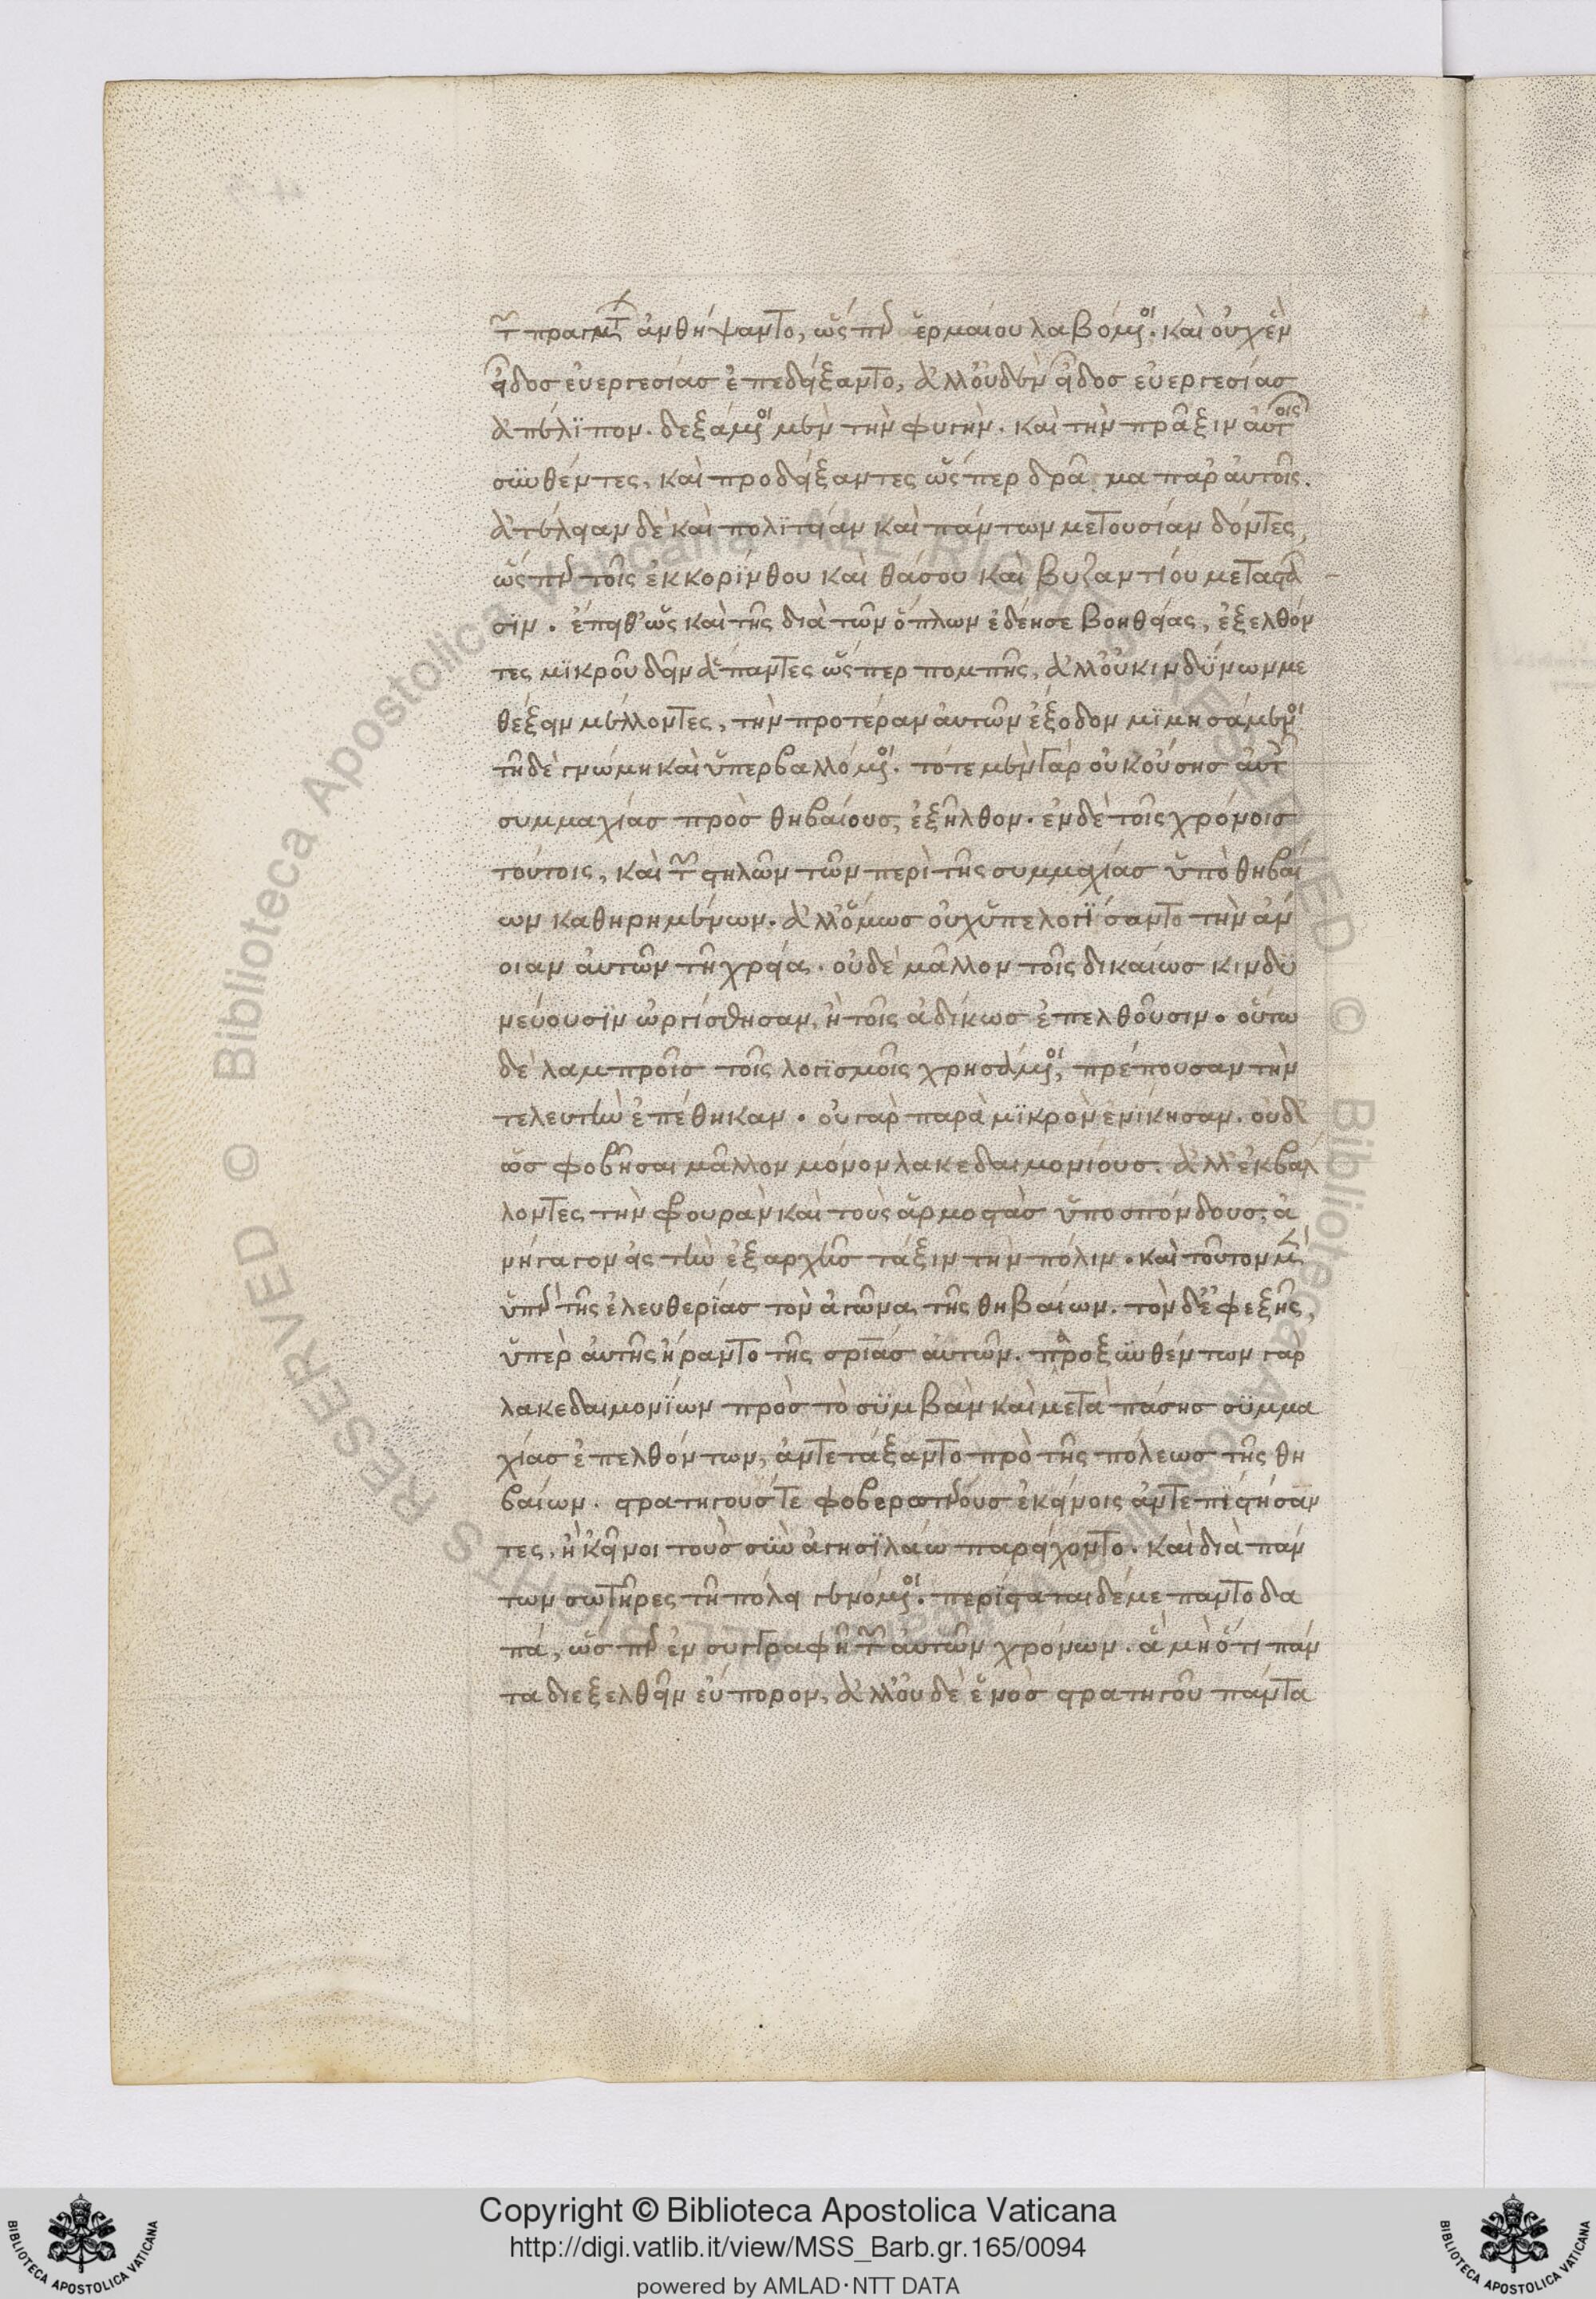 τῶν πραγμάτων ἀνθήψαντο, ὥσπερ ἑρμαίου λαβόμενοι. καὶ οὐχ ἓν
εἶδος εὐεργεσίας ἐπεδείξαντο, ἀλλ' οὐδὲν εἶδος εὐεργεσίας
ἀπέλιπον. δεξάμενοι μὲν τὴν φυγὴν. καὶ τὴν πρᾶξιν αὐτοῖς
συνθέντες, καὶ προδείξαντες ὥσπερ δρᾶμα παρ' αὐτοῖς.
ἀτέλειαν δὲ καὶ πολιτείαν καὶ πάντων μετουσίαν δόντες,
ὥσπερ τοῖς ἐκ κορίνθου καὶ θάσου καὶ βυζαντίου μεταστᾶ
σιν. ἔπειθ' ὡς καὶ τῆς διὰ τῶν ὅπλων ἐδέησε βοηθείας, ἐξελθόν
τες μικροῦ δεῖν ἅπαντες ὥσπερ πομπῆς, ἀλλ' οὐ κινδύνων με
θέξειν μέλλοντες, τὴν προτέραν αὐτῶν ἔξοδον μιμησάμενοι
τῇ δὲ γνώμῃ καὶ ὑπερβαλλόμενοι. τότε μὲν γὰρ οὐκ οὔσης αὐτοῖς
συμμαχίας πρὸς θηβαίους, ἐξῆλθον. ἐν δὲ τοῖς χρόνοις
τούτοις, καὶ τῶν στηλῶν τῶν περὶ τῆς συμμαχίας ὑπὸ θηβαί
ων καθῃρημένων. ἀλλ' ὅμως οὐχ ὑπελογίσαντο τὴν ἄν
οιαν αὐτῶν τῇ χρείᾳ. οὐδὲ μᾶλλον τοῖς δικαίως κινδυ
νεύουσιν ὠργίσθησαν, ἢ τοῖς ἀδίκως ἐπελθοῦσιν. οὕτω
δὲ λαμπροῖς τοῖς λογισμοῖς χρησάμενοι, πρέπουσαν τὴν
τελευτὴν ἐπέθηκαν. οὐ γὰρ παρὰ μικρὸν ἐνίκησαν. οὐδ'
ὡς φοβῆσαι μᾶλλον μόνον λακεδαιμονίους. ἀλλ' ἐκβαλ
λοντες τὴν φρουρὰν καὶ τοὺς ἁρμοστὰς ὑποσπόνδους, ἀ
νήγαγον εἰς τὴν ἐξ ἀρχῆς τάξιν τὴν πόλιν. καὶ τοῦτον μὲν
ὑπὲρ τῆς ἐλευθερίας τὸν ἀγῶνα τῆς θηβαίων. τὸν δ' ἐφεξῆς,
ὑπὲρ αὐτῆς ἤραντο τῆς σωτηρίας αὐτῶν. παροξυνθέντων γὰρ
λακεδαιμονίων πρὸς τὸ συμβὰν καὶ μετὰ πάσης συμμα
χίας ἐπελθόντων, ἀντετάξαντο πρὸ τῆς πόλεως τῆς θη
βαίων. στρατηγούς τε φοβερωτέρους ἐκείνοις ἀντεπιστήσαν
τες, ἢ 'κεῖνοι τοὺς σὺν ἀγησιλάῳ παρείχοντο. καὶ διὰ πάν
των σωτῆρες τῇ πόλει γενόμενοι. περιίσταται δέ με παντοδα
πά, ὥσπερ ἐν συγγραφῇ τῶν αὐτῶν χρόνων. ἃ μὴ ὅτι πάν
τα διεξελθεῖν εὔπορον, ἀλλ' οὐδὲ ἑνὸς στρατηγοῦ πάντα
Copyright © Biblioteca Apostolica Vaticana
http://digi.vatlib.it/view/MSS_Barb.gr.165/0094
powered by AMLAD·NTT DATA